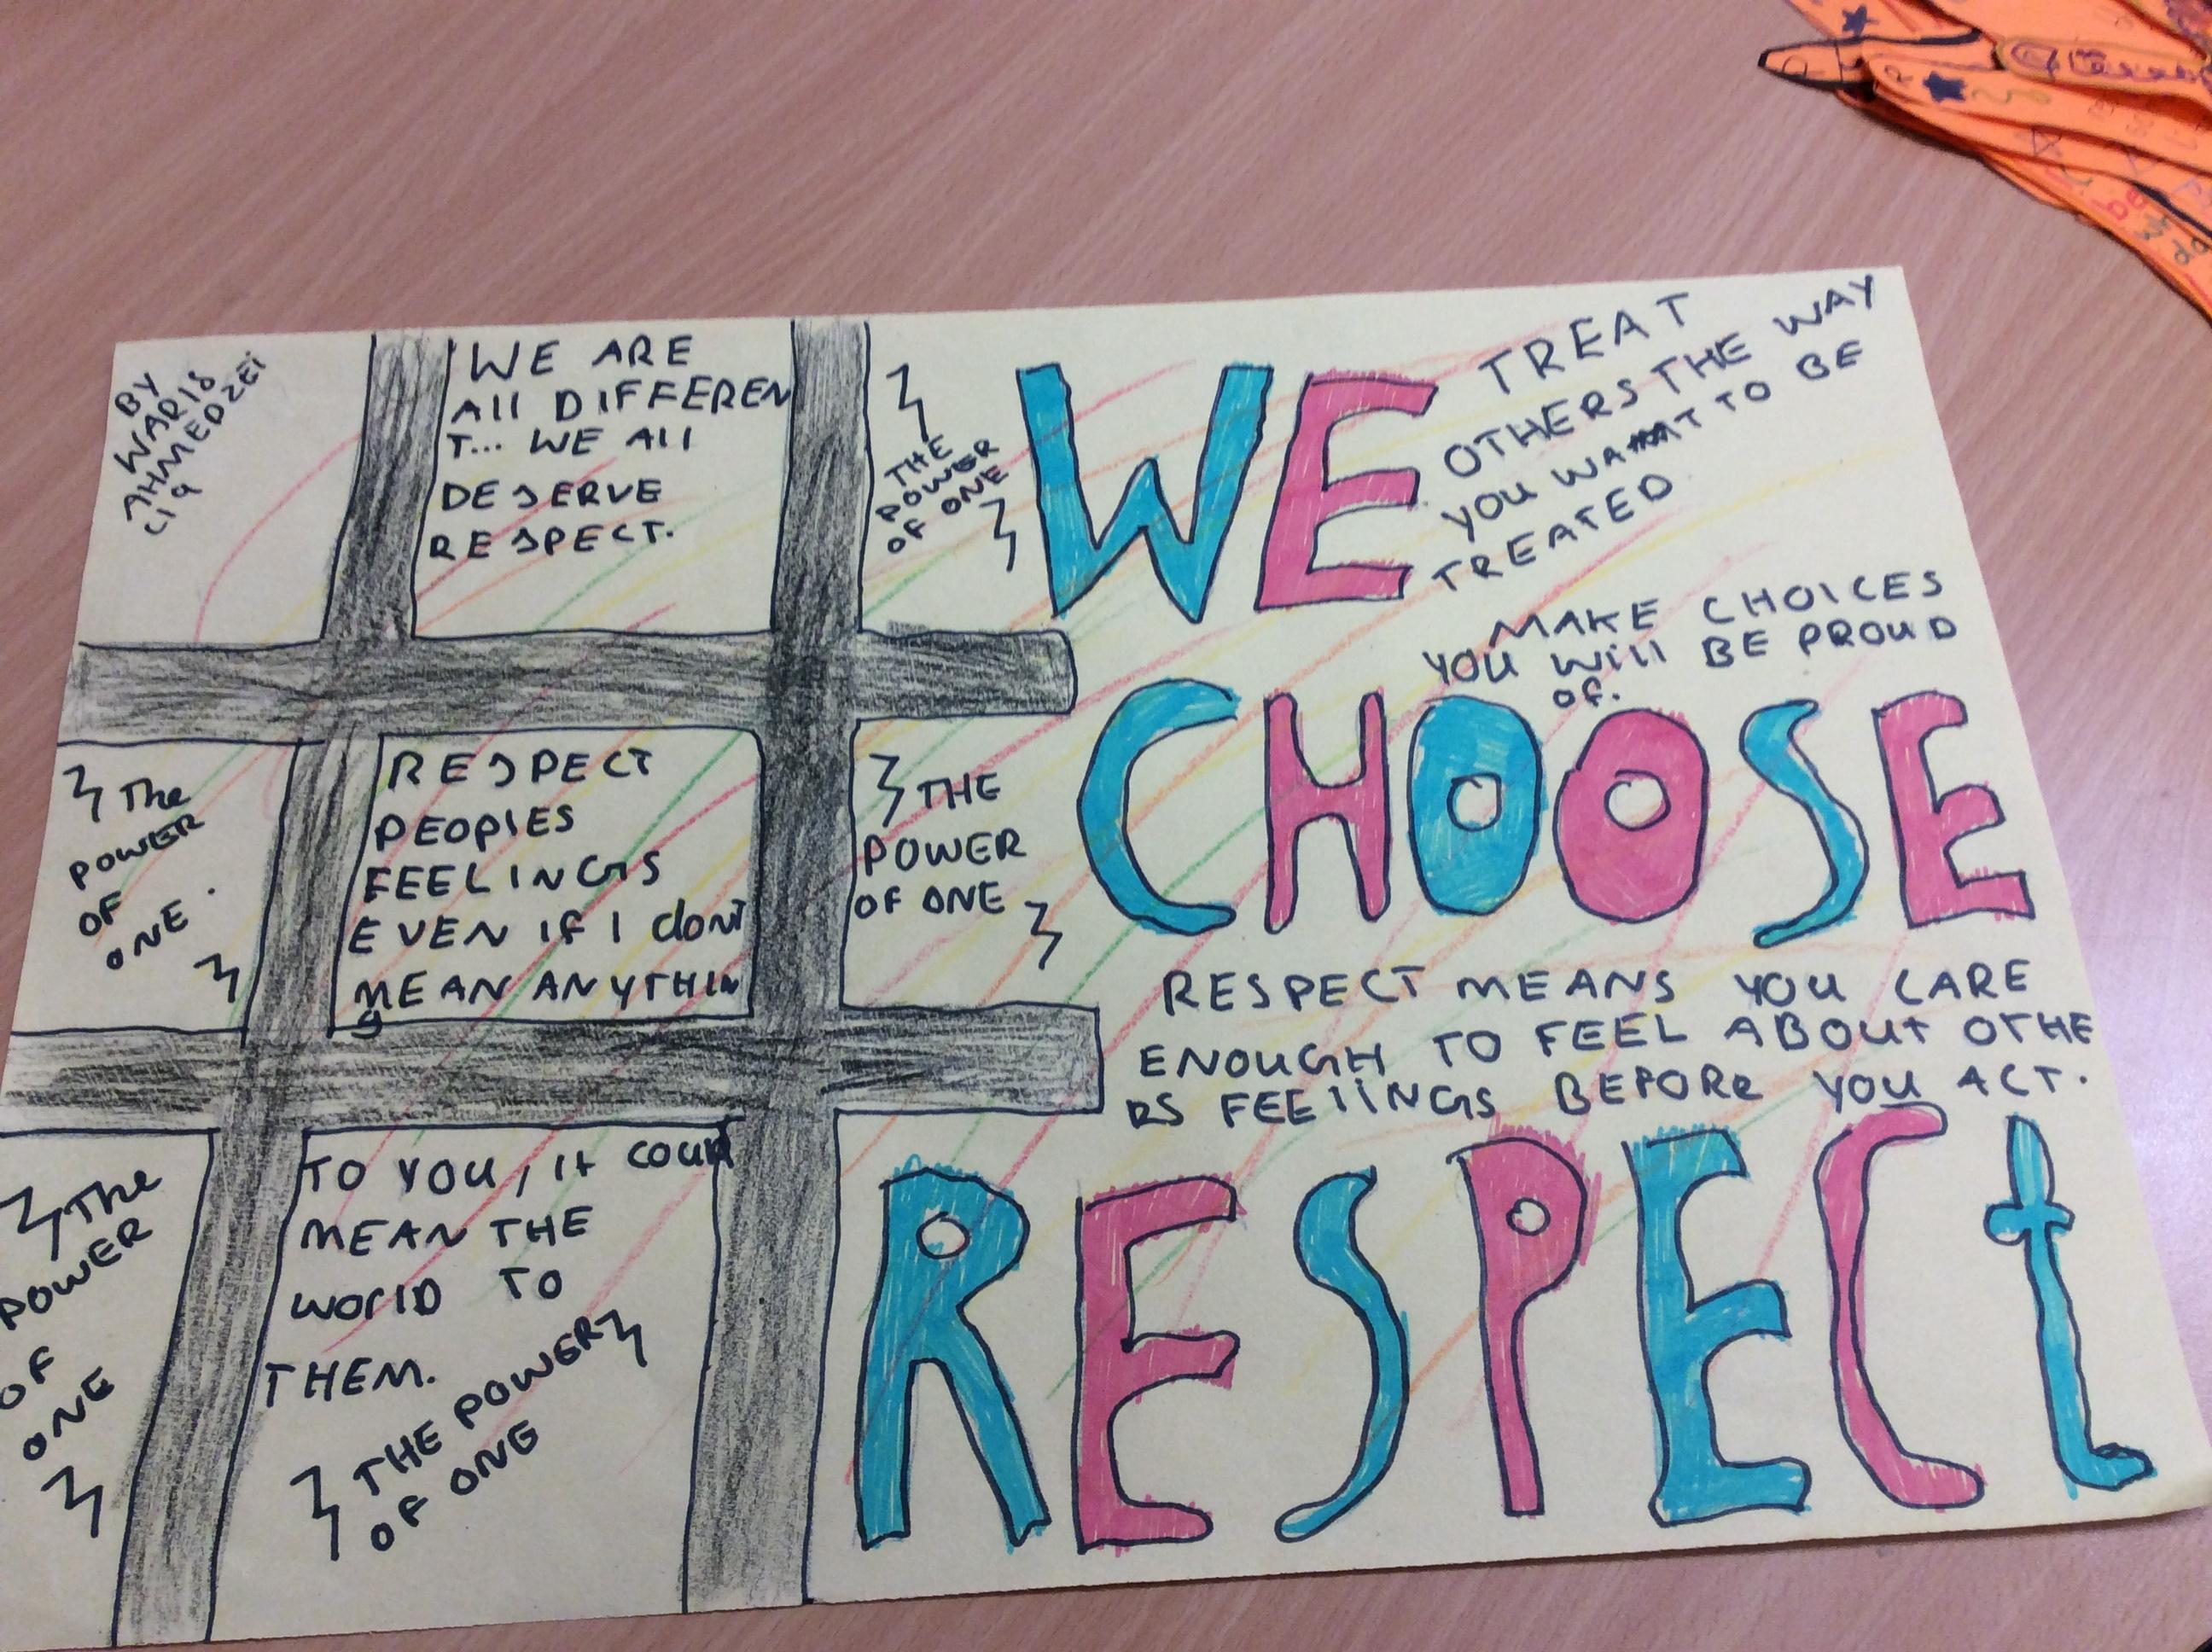 BY
WARIS
AHMEDZEI
C19
WE ARE
All DIFFEREN
T... WE All
DESERVE
RESPECT.
THE
POWER
OF ONE
WE
TREAT
OTHERS THE WAY
YOU WANT TO BE
TREATED
MAKE CHOICES
YOU Will BE PROUD
OF.
CHOOSE
The
POWER
OF
ONE.
RESPECT
PEOPlES
FEELINGS
EVEN IF I dont
MEAN ANYTHIN
g
THE
POWER
OF ONE
RESPECT MEANS YOU CARE
ENOUGH TO FEEL ABOUt OTHE
RS FEElINGS BEFORe YOU ACT.
RESPECt
The
POWER
OF
ONE
TO YOU, It COUld
MEAN THE
WOrlD TO
THEM.
THE POWER
OF ONE